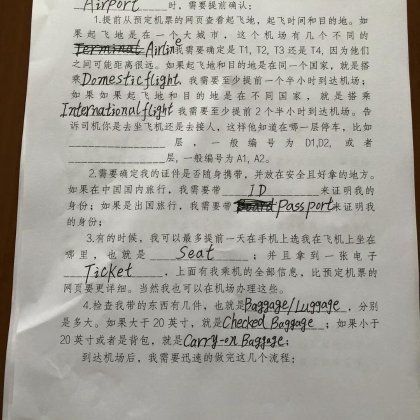 Airport 时，需要提前确认：
1.提前从预定机票的网页查看起飞地，起飞时间和目的地。如
果起飞地是在一个大城市，这个机场有几个不同的
Terminal Airline我需要确定是 T1, T2, T3 还是 T4, 因为他们
之间可能距离很远。如果起飞地和目的地是在同一个国家，就是搭
乘Domestic flight, 我需要至少提前一个半小时到达机场；
如果如果起飞地和目的地是在不同国家，就是搭乘
International flight 我需要至少提前 2 个半小时到达机场。告
诉司机你是去坐飞机还是去接人，这样他知道在哪一层停车，比如
层，一般编号为 D1,D2, 或者
层, 一般编号为 A1, A2。
2.需要确定我的证件是否随身携带，并放在安全且好拿的地方。
如果在中国国内旅行，我需要带 ID 来证明我的
身份；如果是出国旅行，我需要带 Passport来证明我
的身份；
3.有的时候，我可以最多提前一天在手机上选我在飞机上坐在
哪里，也就是 Seat ；并且拿到一张电子
Ticket ，上面有我乘机的全部信息，比预定机票的
网页要更详细。当然我也可以在机场办理这些。
4.检查我带的东西有几件，也就是Baggage/Luggage，分别
是多大。如果大于 20 英寸，就是Checked Baggage；如果小于
20 英寸或者是背包，就是Carry-on Baggage；
到达机场后，我需要迅速的做完这几个流程：